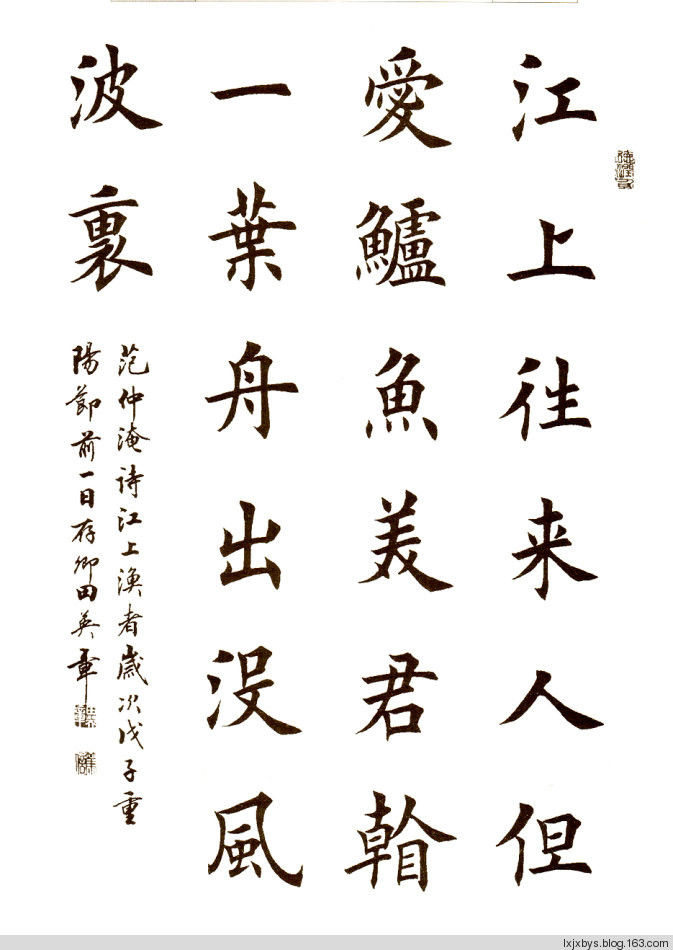 江上往来人但
愛鱸魚美君看
一葉舟出没風
波裏
范仲淹诗江上漁者歲次戊子重
陽節前一日存卿田英章
lxjxbys.blog.163.com